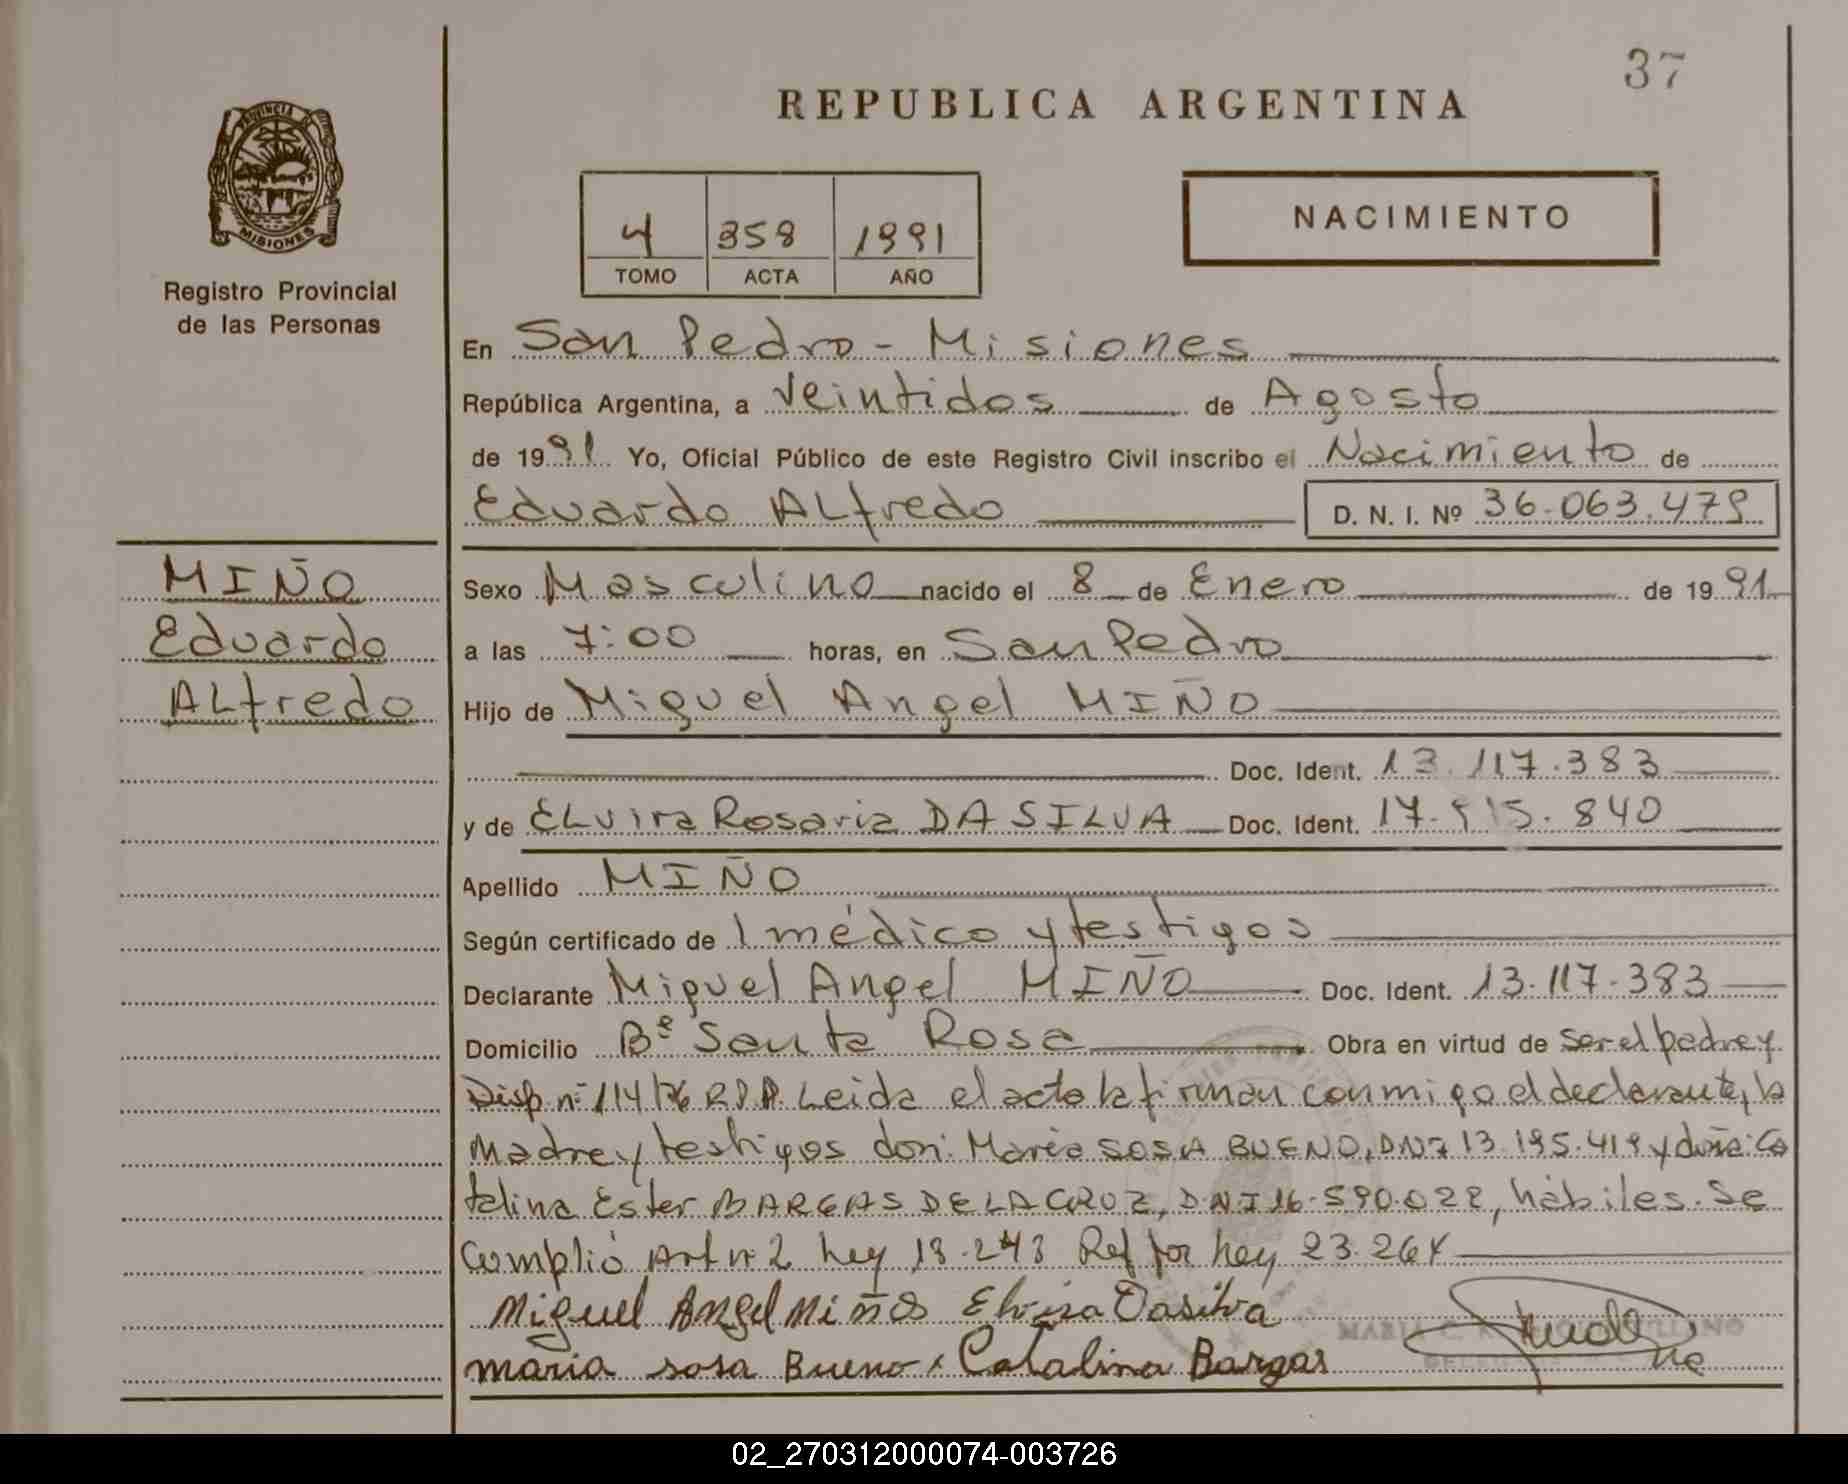 37
REPUBLICA ARGENTINA
PROVINCIA DE
MISIONES
Registro Provincial
de las Personas
4 358 1991
TOMO ACTA AÑO
NACIMIENTO
En San Pedro - Misiones
República Argentina, a veintidos de Agosto
de 1991. Yo, Oficial Público de este Registro Civil inscribo el Nacimiento de
Eduardo ALfredo D. N. I. Nº 36.063.479
MIÑO
Eduardo
ALfredo
Sexo Masculino nacido el 8 de Enero de 1991
a las 7:00 horas, en San Pedro
Hijo de Miguel Angel MIÑO
Doc. Ident. 13.117.383
y de ELvira Rosaria DA SILVA Doc. Ident. 17. 15.840
Apellido MIÑO
Según certificado de 1 médico y testigos
Declarante Miguel Angel MIÑO Doc. Ident. 13.117.383
Domicilio Bº Santa Rosa Obra en virtud de ser el padre y
Disp nº 114/76 R.P.P. Leida el acta la firman conmigo el declarante, la
madre y testigos don: María SOSA BUENO, DNI 13.195.419 y doña: Ca
talina Ester BARGAS DE LA CRUZ, DNI 16.590.022, hábiles. Se
cumplió Art nº 2 Ley 18.248 Ref por Ley 23.264
Miguel Angel Miño Elvira Dasilva
maria sosa Bueno Catalina Bargas
02_270312000074-003726